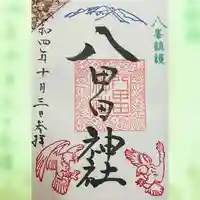 八峯鎮護
八甲田神社
令和四年十月三日参拝